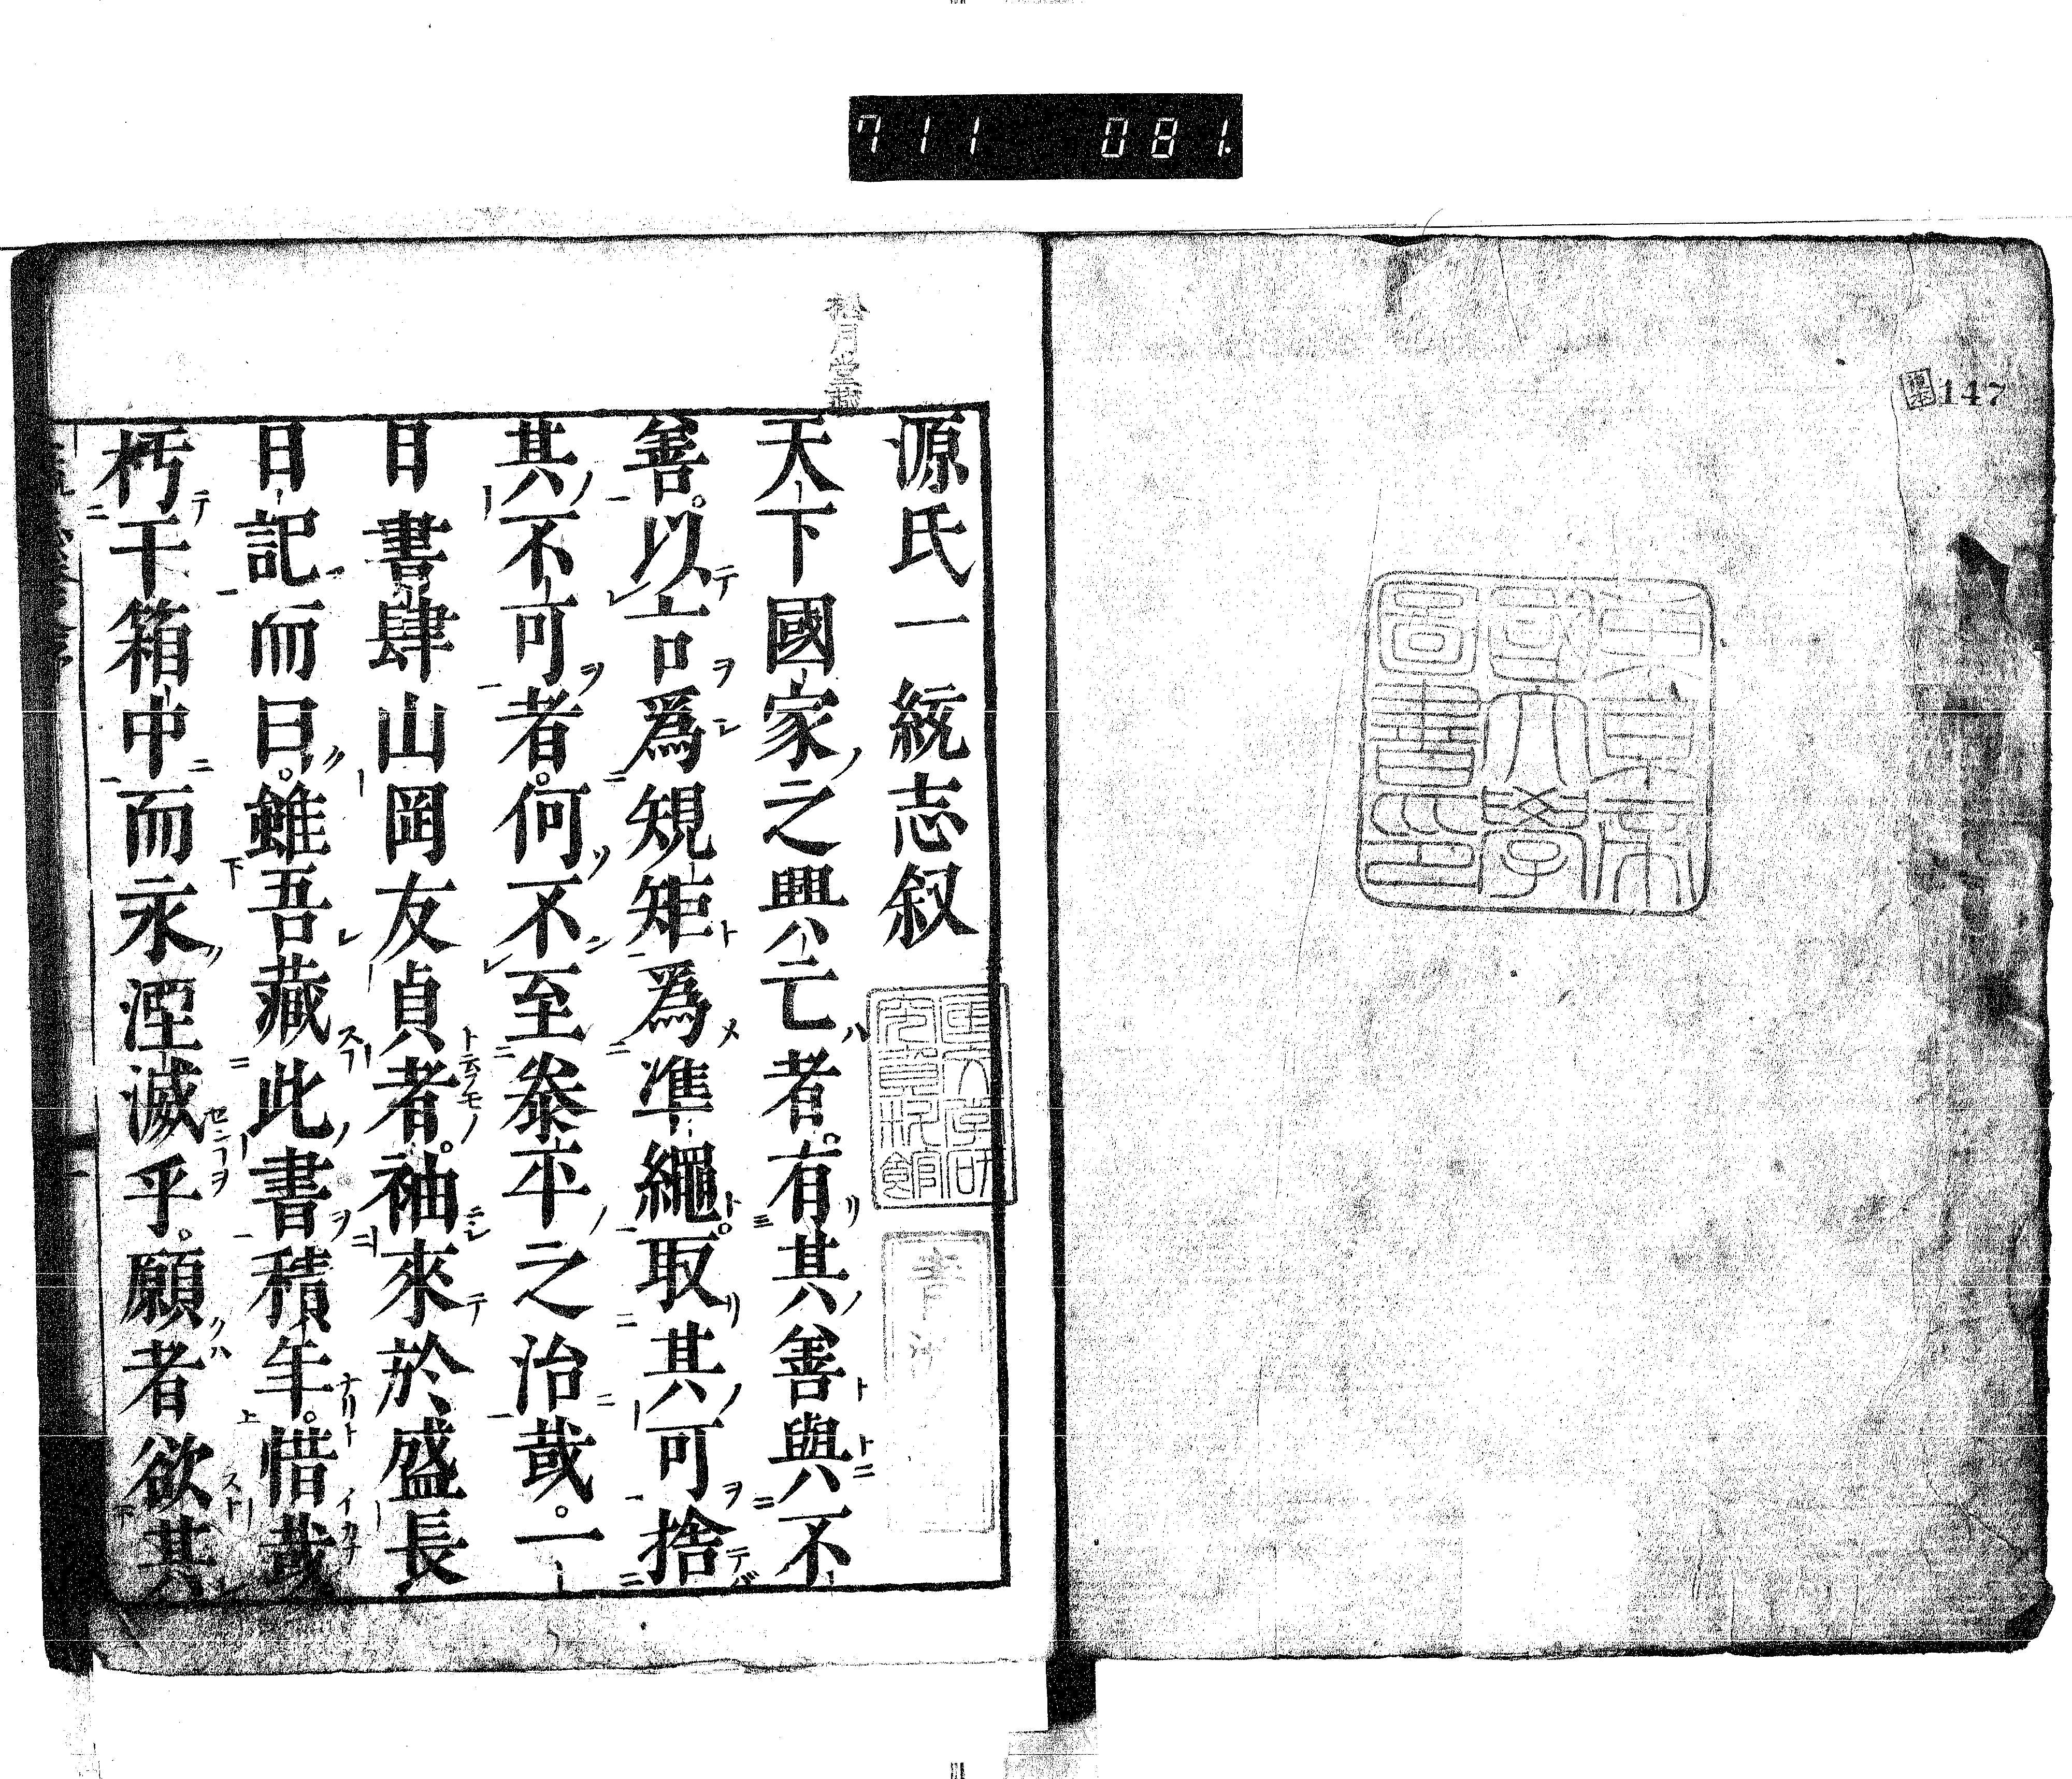 711 081.
147
東京帝
國大學
圖書印
松月堂藏
源氏一統志叙
天下國家之興亡者。有其善與不
善。以言爲規矩爲準繩。取其可捨
其不可者。何不至泰平之治哉。一
日書肆山岡友貞者。袖來於盛長
日記而曰。雖吾藏此書積年。惜哉
朽干箱中而永湮滅乎。願者欲其